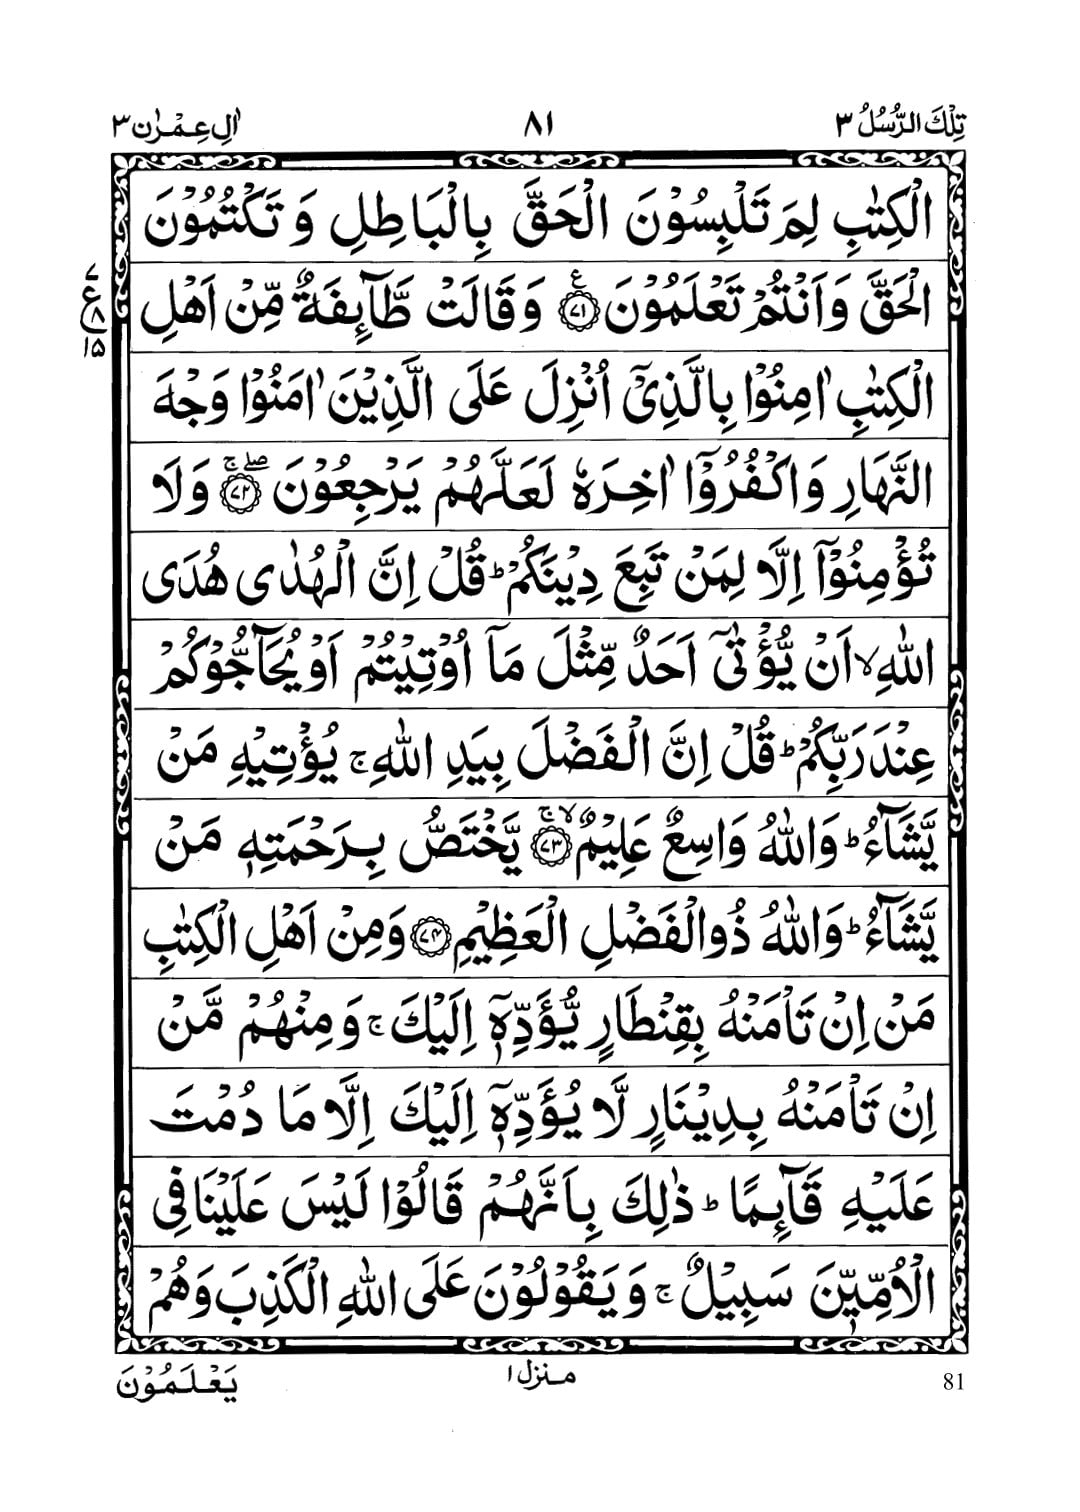 تِلْكَ الرُّسُلُ ٣
٨١
اٰلِ عِمْرٰن ٣
الْكِتٰبِ لِمَ تَلْبِسُوْنَ الْحَقَّ بِالْبَاطِلِ وَ تَكْتُمُوْنَ
الْحَقَّ وَاَنْتُمْ تَعْلَمُوْنَ ﴿۷۱﴾ ع وَقَالَتْ طَّآىِٕفَةٌ مِّنْ اَهْلِ
٧
ع
٨
١٥
الْكِتٰبِ اٰمِنُوْا بِالَّذِىْۤ اُنْزِلَ عَلَى الَّذِيْنَ اٰمَنُوْا وَجْهَ
النَّهَارِ وَاكْفُرُوْۤا اٰخِرَهٗ لَعَلَّهُمْ يَرْجِعُوْنَ ﴿۷۲﴾ ۖۚ وَلَا
تُؤْمِنُوْۤا اِلَّا لِمَنْ تَبِعَ دِيْنَكُمْ ؕ قُلْ اِنَّ الْهُدٰى هُدَى
اللّٰهِ ۙ اَنْ يُّؤْتٰٓى اَحَدٌ مِّثْلَ مَاۤ اُوْتِيْتُمْ اَوْ يُحَآجُّوْكُمْ
عِنْدَ رَبِّكُمْ ؕ قُلْ اِنَّ الْفَضْلَ بِيَدِ اللّٰهِ ۚ يُؤْتِيْهِ مَنْ
يَّشَآءُ ؕ وَاللّٰهُ وَاسِعٌ عَلِيْمٌ ﴿۷۳﴾ ۙۚ يَّخْتَصُّ بِرَحْمَتِهٖ مَنْ
يَّشَآءُ ؕ وَاللّٰهُ ذُوالْفَضْلِ الْعَظِيْمِ ﴿۷۴﴾ وَمِنْ اَهْلِ الْكِتٰبِ
مَنْ اِنْ تَاْمَنْهُ بِقِنْطَارٍ يُّؤَدِّهٖۤ اِلَيْكَ ۚ وَمِنْهُمْ مَّنْ
اِنْ تَاْمَنْهُ بِدِيْنَارٍ لَّا يُؤَدِّهٖۤ اِلَيْكَ اِلَّا مَا دُمْتَ
عَلَيْهِ قَآىِٕمًا ؕ ذٰلِكَ بِاَنَّهُمْ قَالُوْا لَيْسَ عَلَيْنَا فِى
الْاُمِّيّٖنَ سَبِيْلٌ ۚ وَيَقُوْلُوْنَ عَلَى اللّٰهِ الْكَذِبَ وَهُمْ
يَعْلَمُوْنَ
منزل ١
81